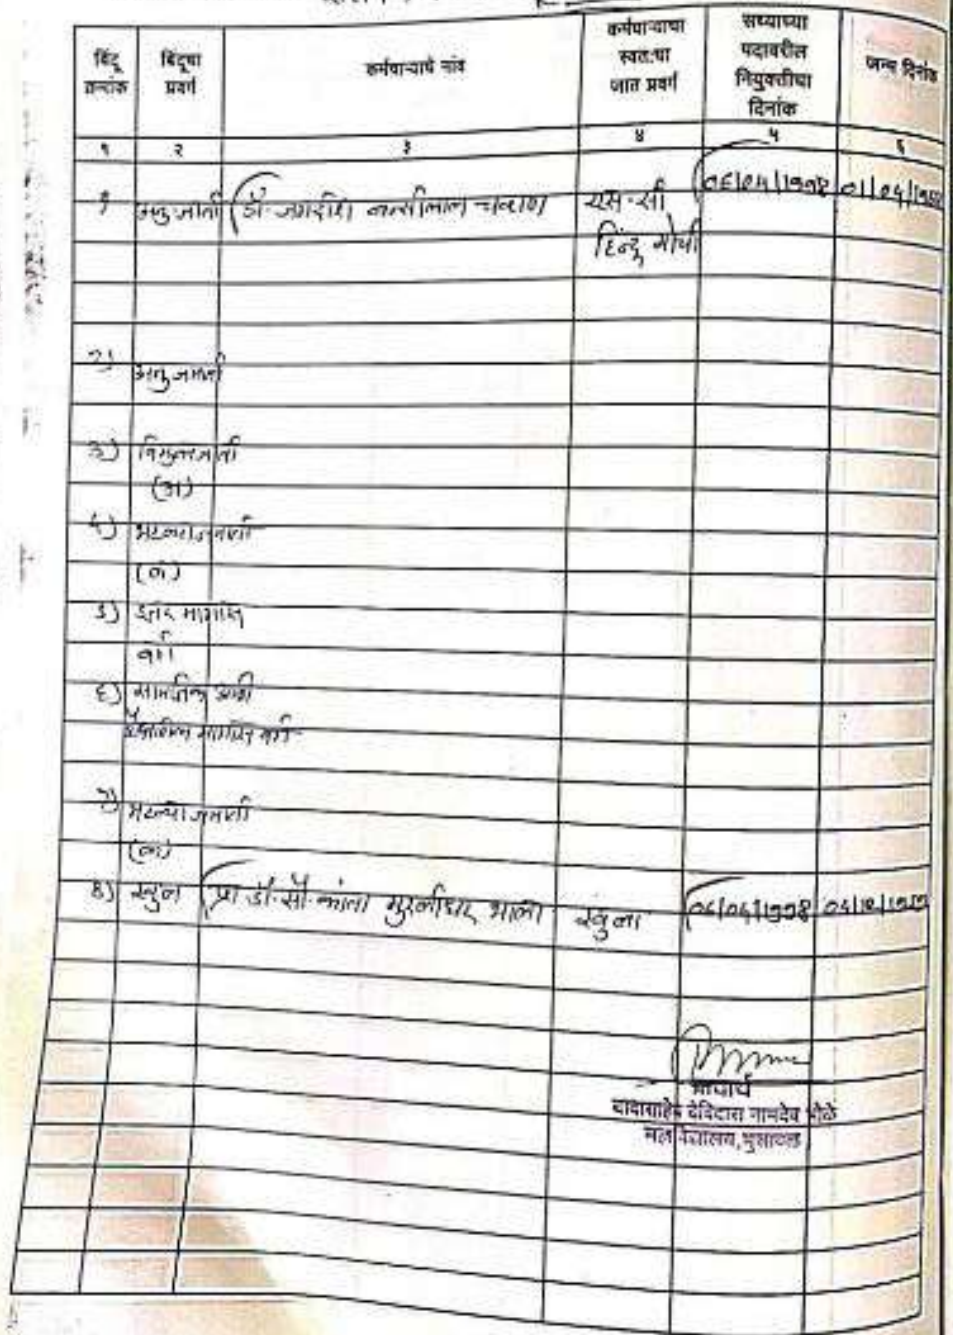 बिंदू क्रमांक
बिंदूचा प्रवर्ग
कर्मचाऱ्याचे नांव
कर्मचाऱ्याचा स्वतःचा जात प्रवर्ग
सध्याच्या पदावरील नियुक्तीचा दिनांक
जन्म दिनांक
१ २ ३ ४ ५ ६
१ अनु जाती डॉ. जगदीश चव्हाण एस-सी
हिन्दू मोची
2) अनु जमाती
3) विमुक्त जाती
(अ)
४) भटक्या जमाती
(ब)
5) इतर मागास
वर्ग
६) सामाजिक आणि
शैक्षणिक मागास वर्ग
7) भटक्या जमाती
(क)
8) खुला प्रा डॉ. सौ. कांता मुरलीधर भाला खुला
प्राचार्य
दादासाहेब देविदास नामदेव भोळे
महाविद्यालय, भुसावळ